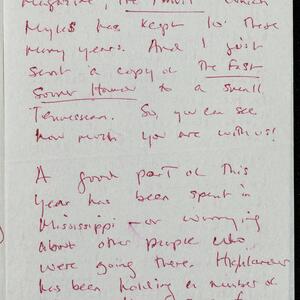 Magazine, The Anvil which
Myles has kept lo these
many years. And I just
sent a copy of The Fast
Sooner Hound to a small
Tennessean. So, you can see
how much you are with us!
A good part of this
year has been spent in
Mississippi – or worrying
about other people who
were going there. Highlander
has been holding a number of